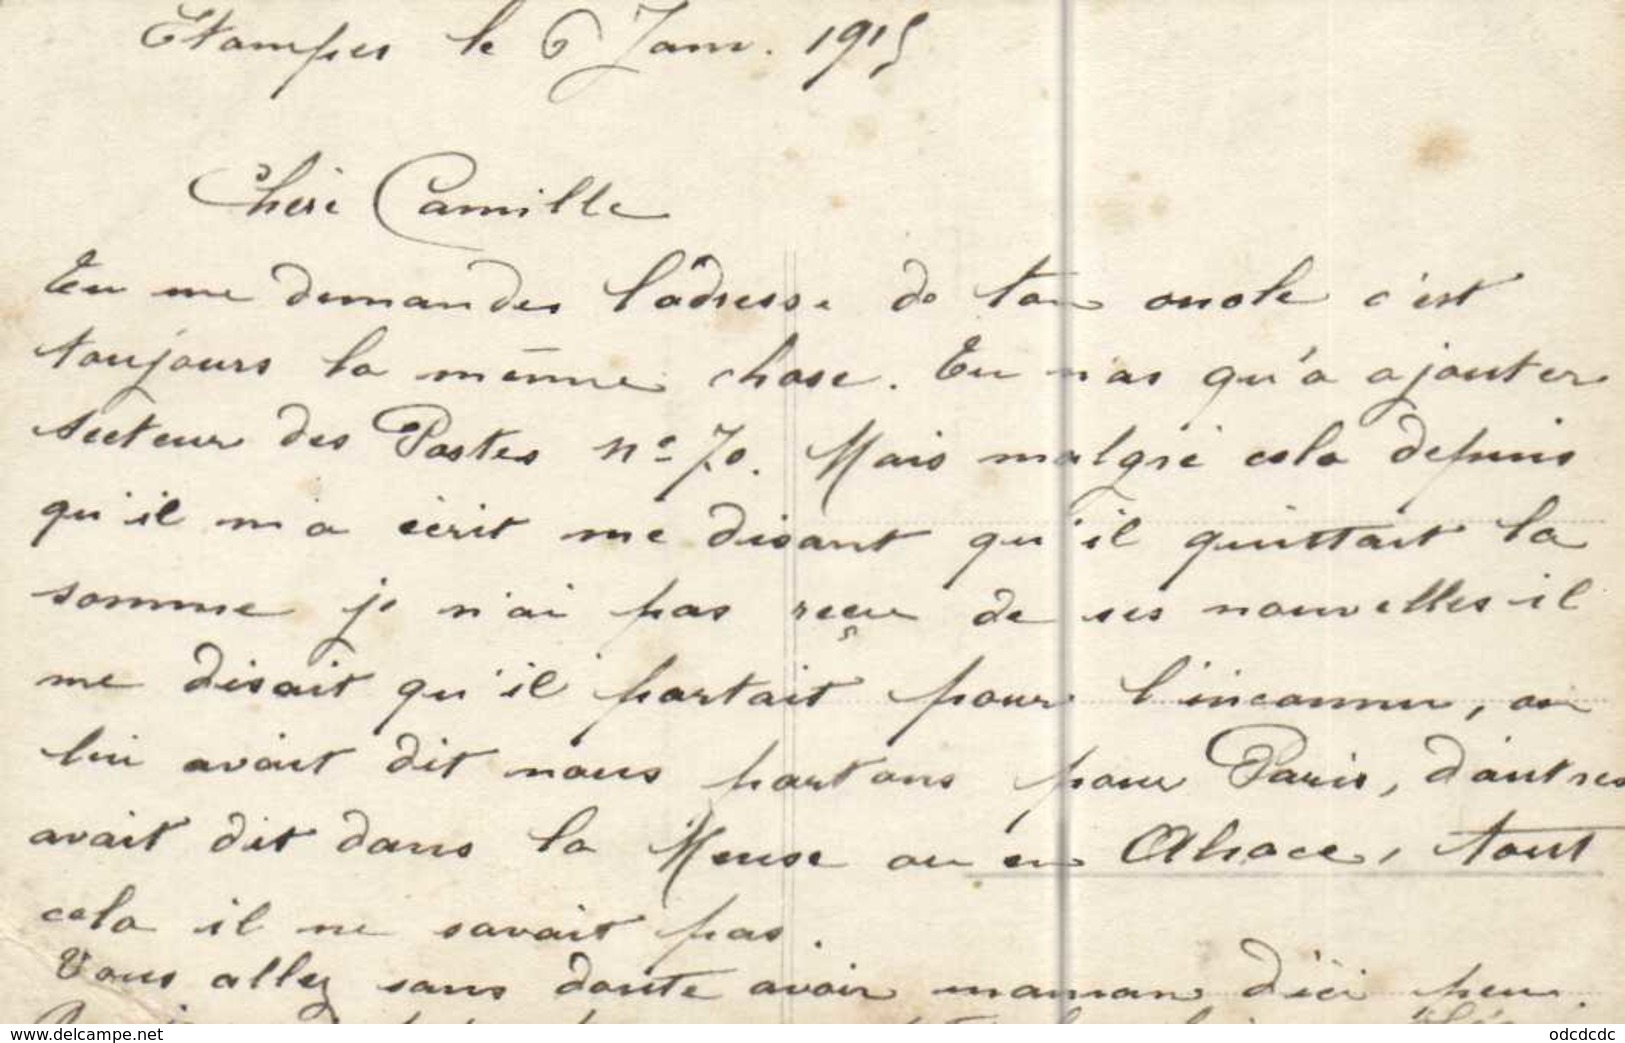 Etampes le 6 Janv. 1915
Chère Camille
Tu me demandes l'adresse de ton oncle c'est
toujours la même chose. Tu n'as qu'à ajouter
secteur des Postes n° 70. Mais malgré cela depuis
qu'il m'a écrit me disant qu'il quittait la
somme je n'ai pas reçu de ses nouvelles il
me disait qu'il partait pour l'inconnu, on
lui avait dit nous partons pour Paris, d'autres
avait dit dans la Meuse ou en Alsace, tout
cela il ne savait pas.
Vous allez sans doute avoir maman d'ici peu.
delcampe.net
odcdcdc